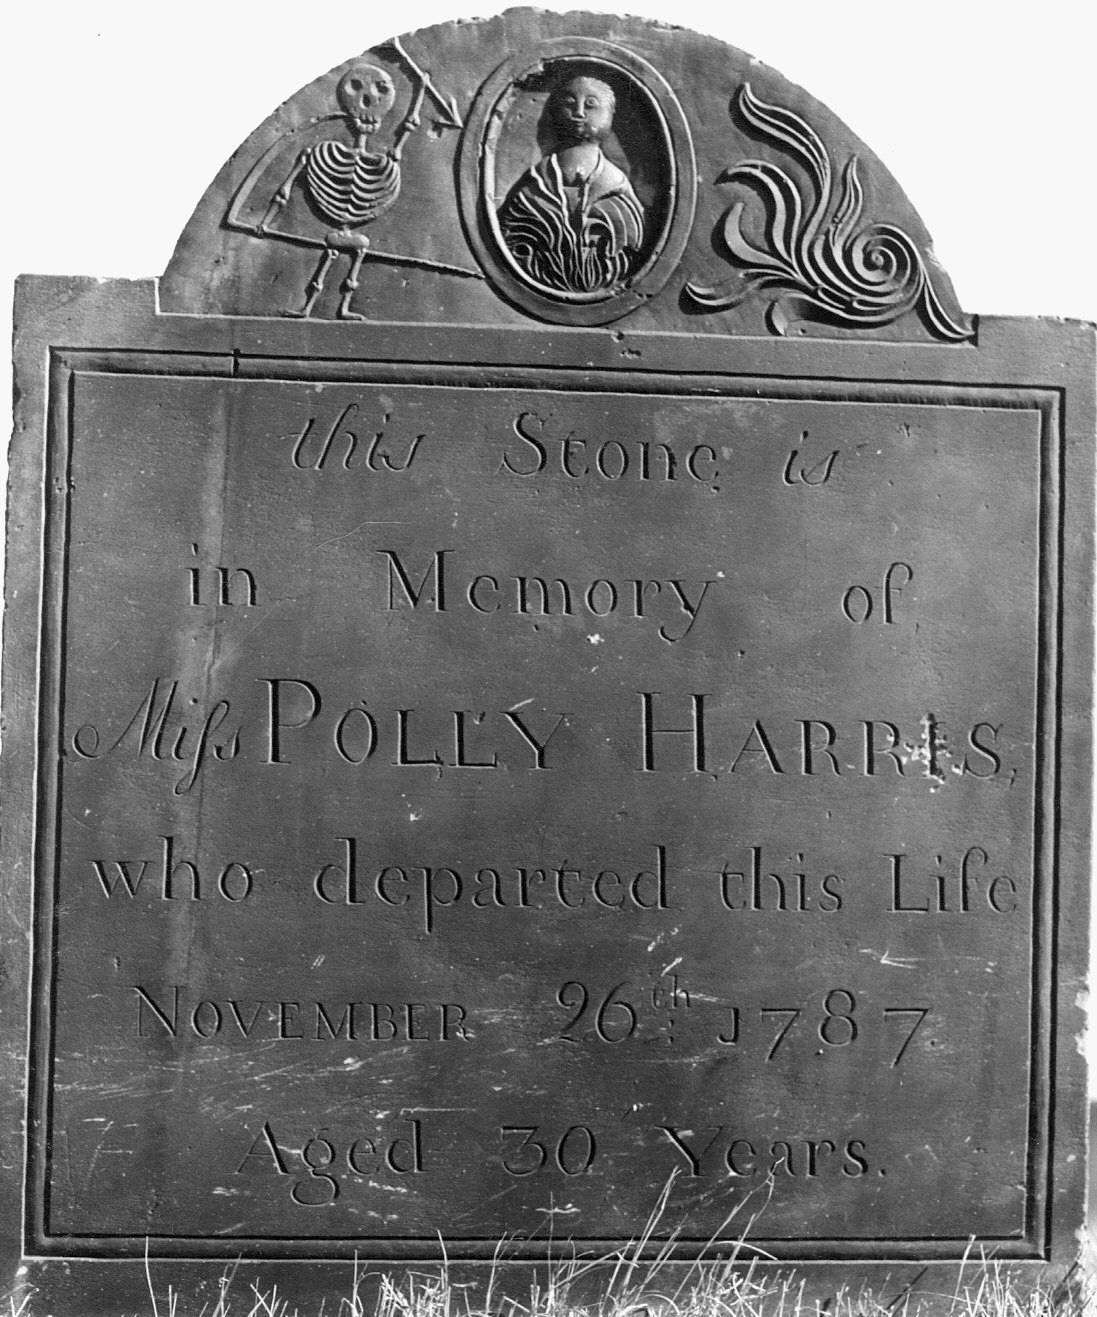 this Stone is
in Memory of
Miſs POLLY HARRIS,
who departed this Life
NOVEMBER 26th. 1787.
Aged 30 Years.